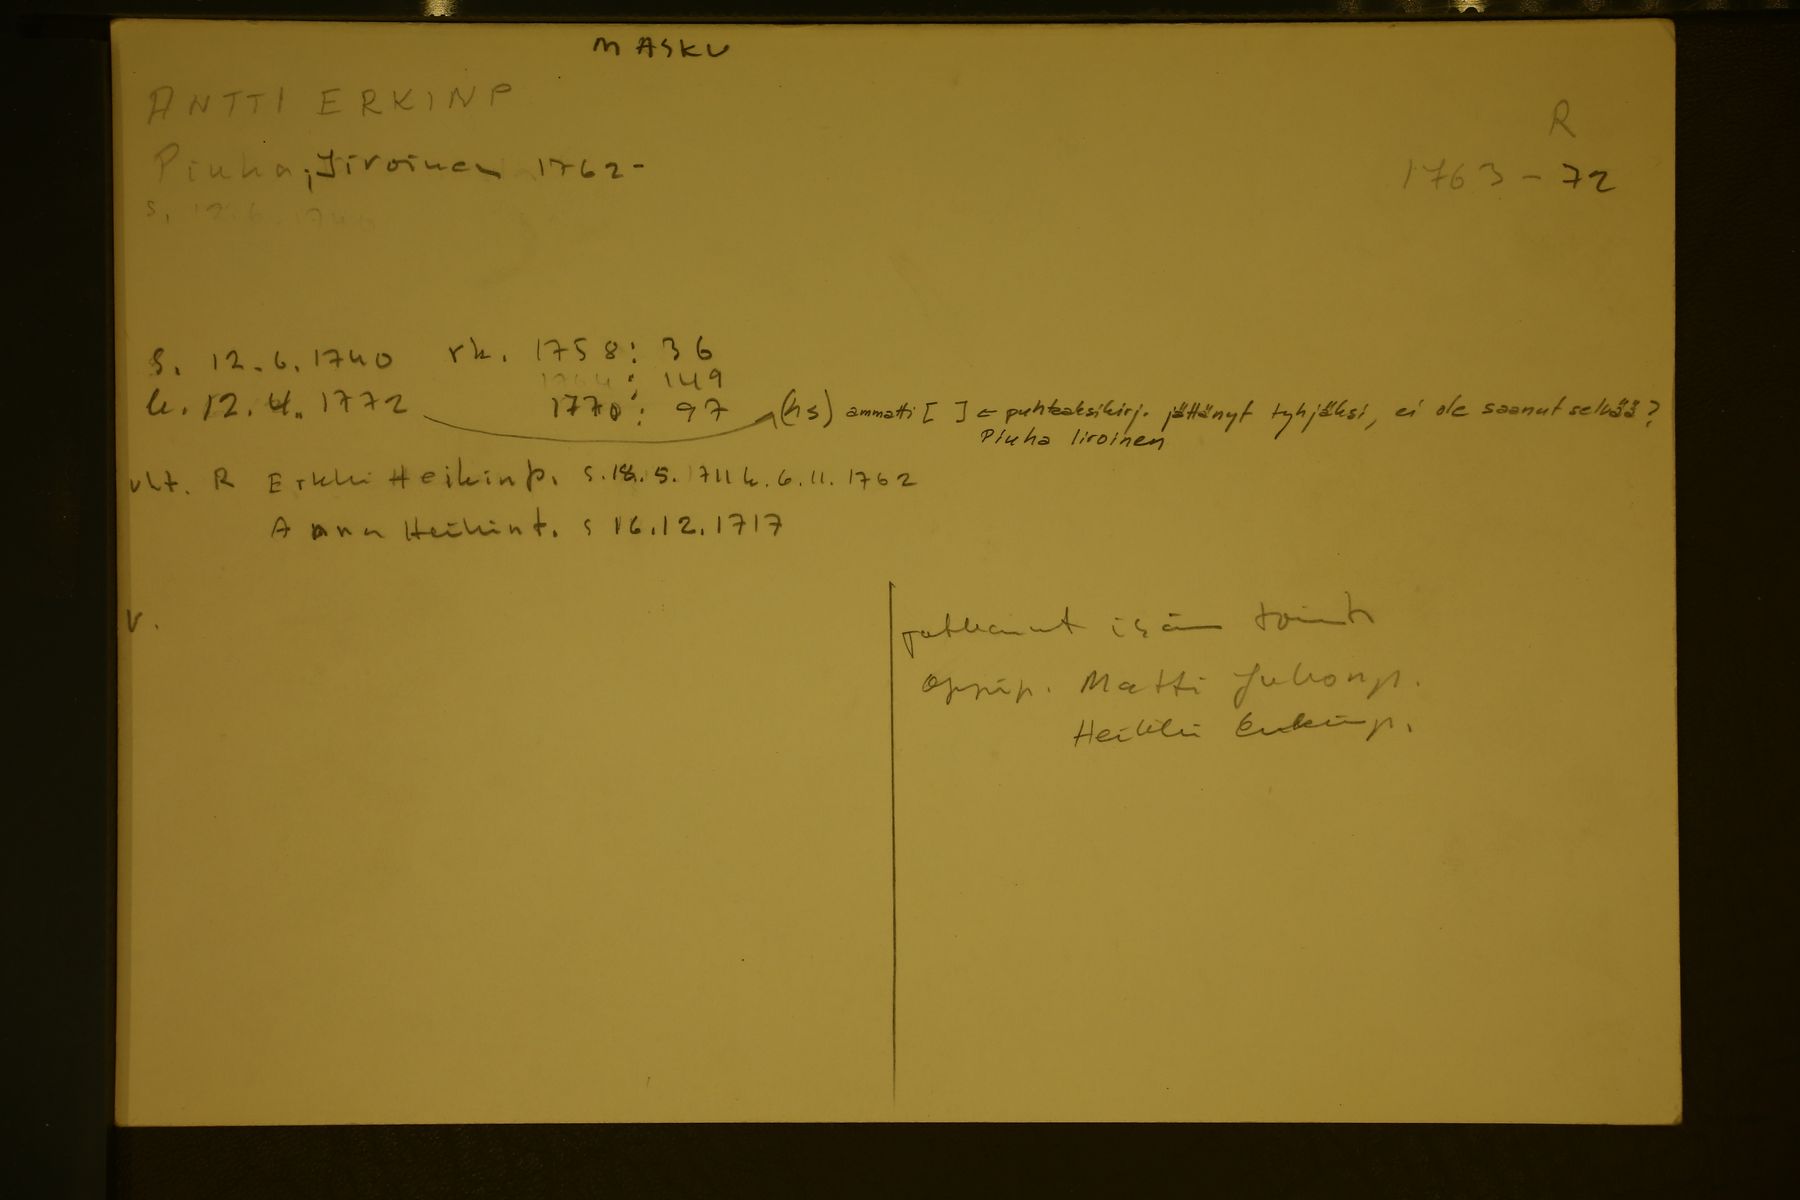 MASKU
ANTTI ERKINP
R
Piuha, Iiroinen 1762-
1763-72
s. 12.6.1740
s. 12.6.1740 rk. 1758: 36
1764: 149
k. 12.4.1772 1770: 97 (hs) ammatti [ ] ← puhtaaksikirj. jättänyt tyhjäksi, ei ole saanut selvää?
Piuha Iiroinen
vht. R Erkki Heikinp. s. 18.5.1711 k. 6.11.1762
Anna Heikint. s 16.12.1717
v.
jatkanut isän
oppip. Matti Juhonp.
Heikki Erkinp.